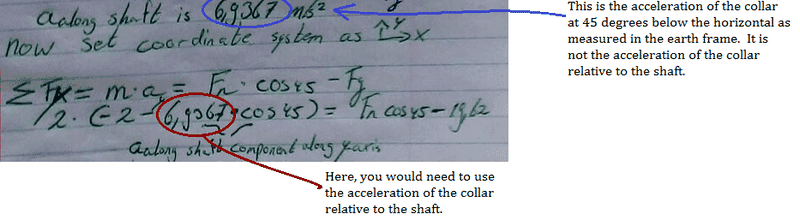 aalong shaft is 6,9367 m/s²
now set coordinate system as y x
ΣFy = m·ay = Fn · cos45 - Fg
2·(-2-6,9367·cos45) = Fn cos45 - 19,62
aalong shaft component along y axis
This is the acceleration of the collar
at 45 degrees below the horizontal as
measured in the earth frame.  It is
not the acceleration of the collar
relative to the shaft.
Here, you would need to use
the acceleration of the collar
relative to the shaft.